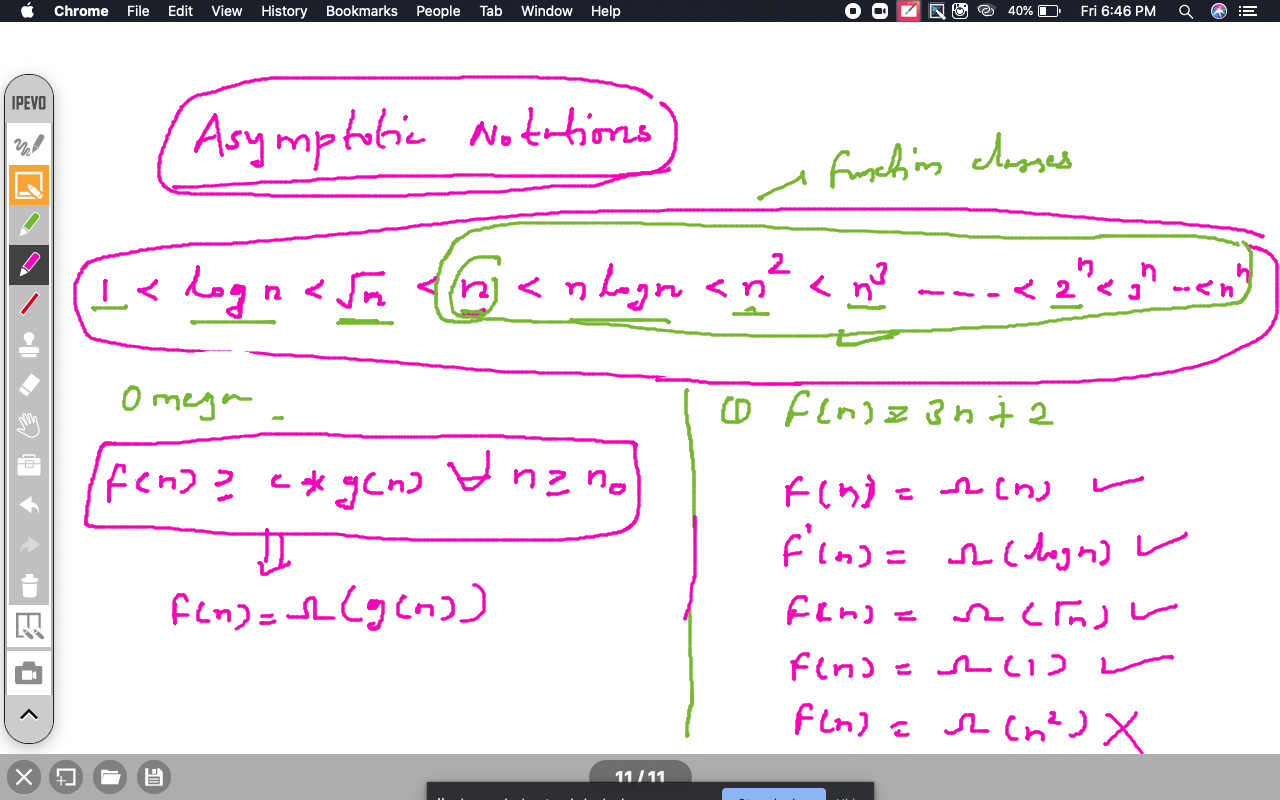 Chrome File Edit View History Bookmarks People Tab Window Help 40% Fri 6:46 PM
IPEVO
Asymptotic Notations
function classes
1 < log n < √n < n < n log n < n² < n³ ---- < 2ⁿ < 3ⁿ --< nⁿ
Omega
f(n) ≥ c * g(n) ∀ n ≥ n₀
⇓
f(n) = Ω(g(n))
① f(n) = 3n + 2
f(n) = Ω(n) ✓
f(n) = Ω(log n) ✓
f(n) = Ω(√n) ✓
f(n) = Ω(1) ✓
f(n) = Ω(n²) X
11 / 11